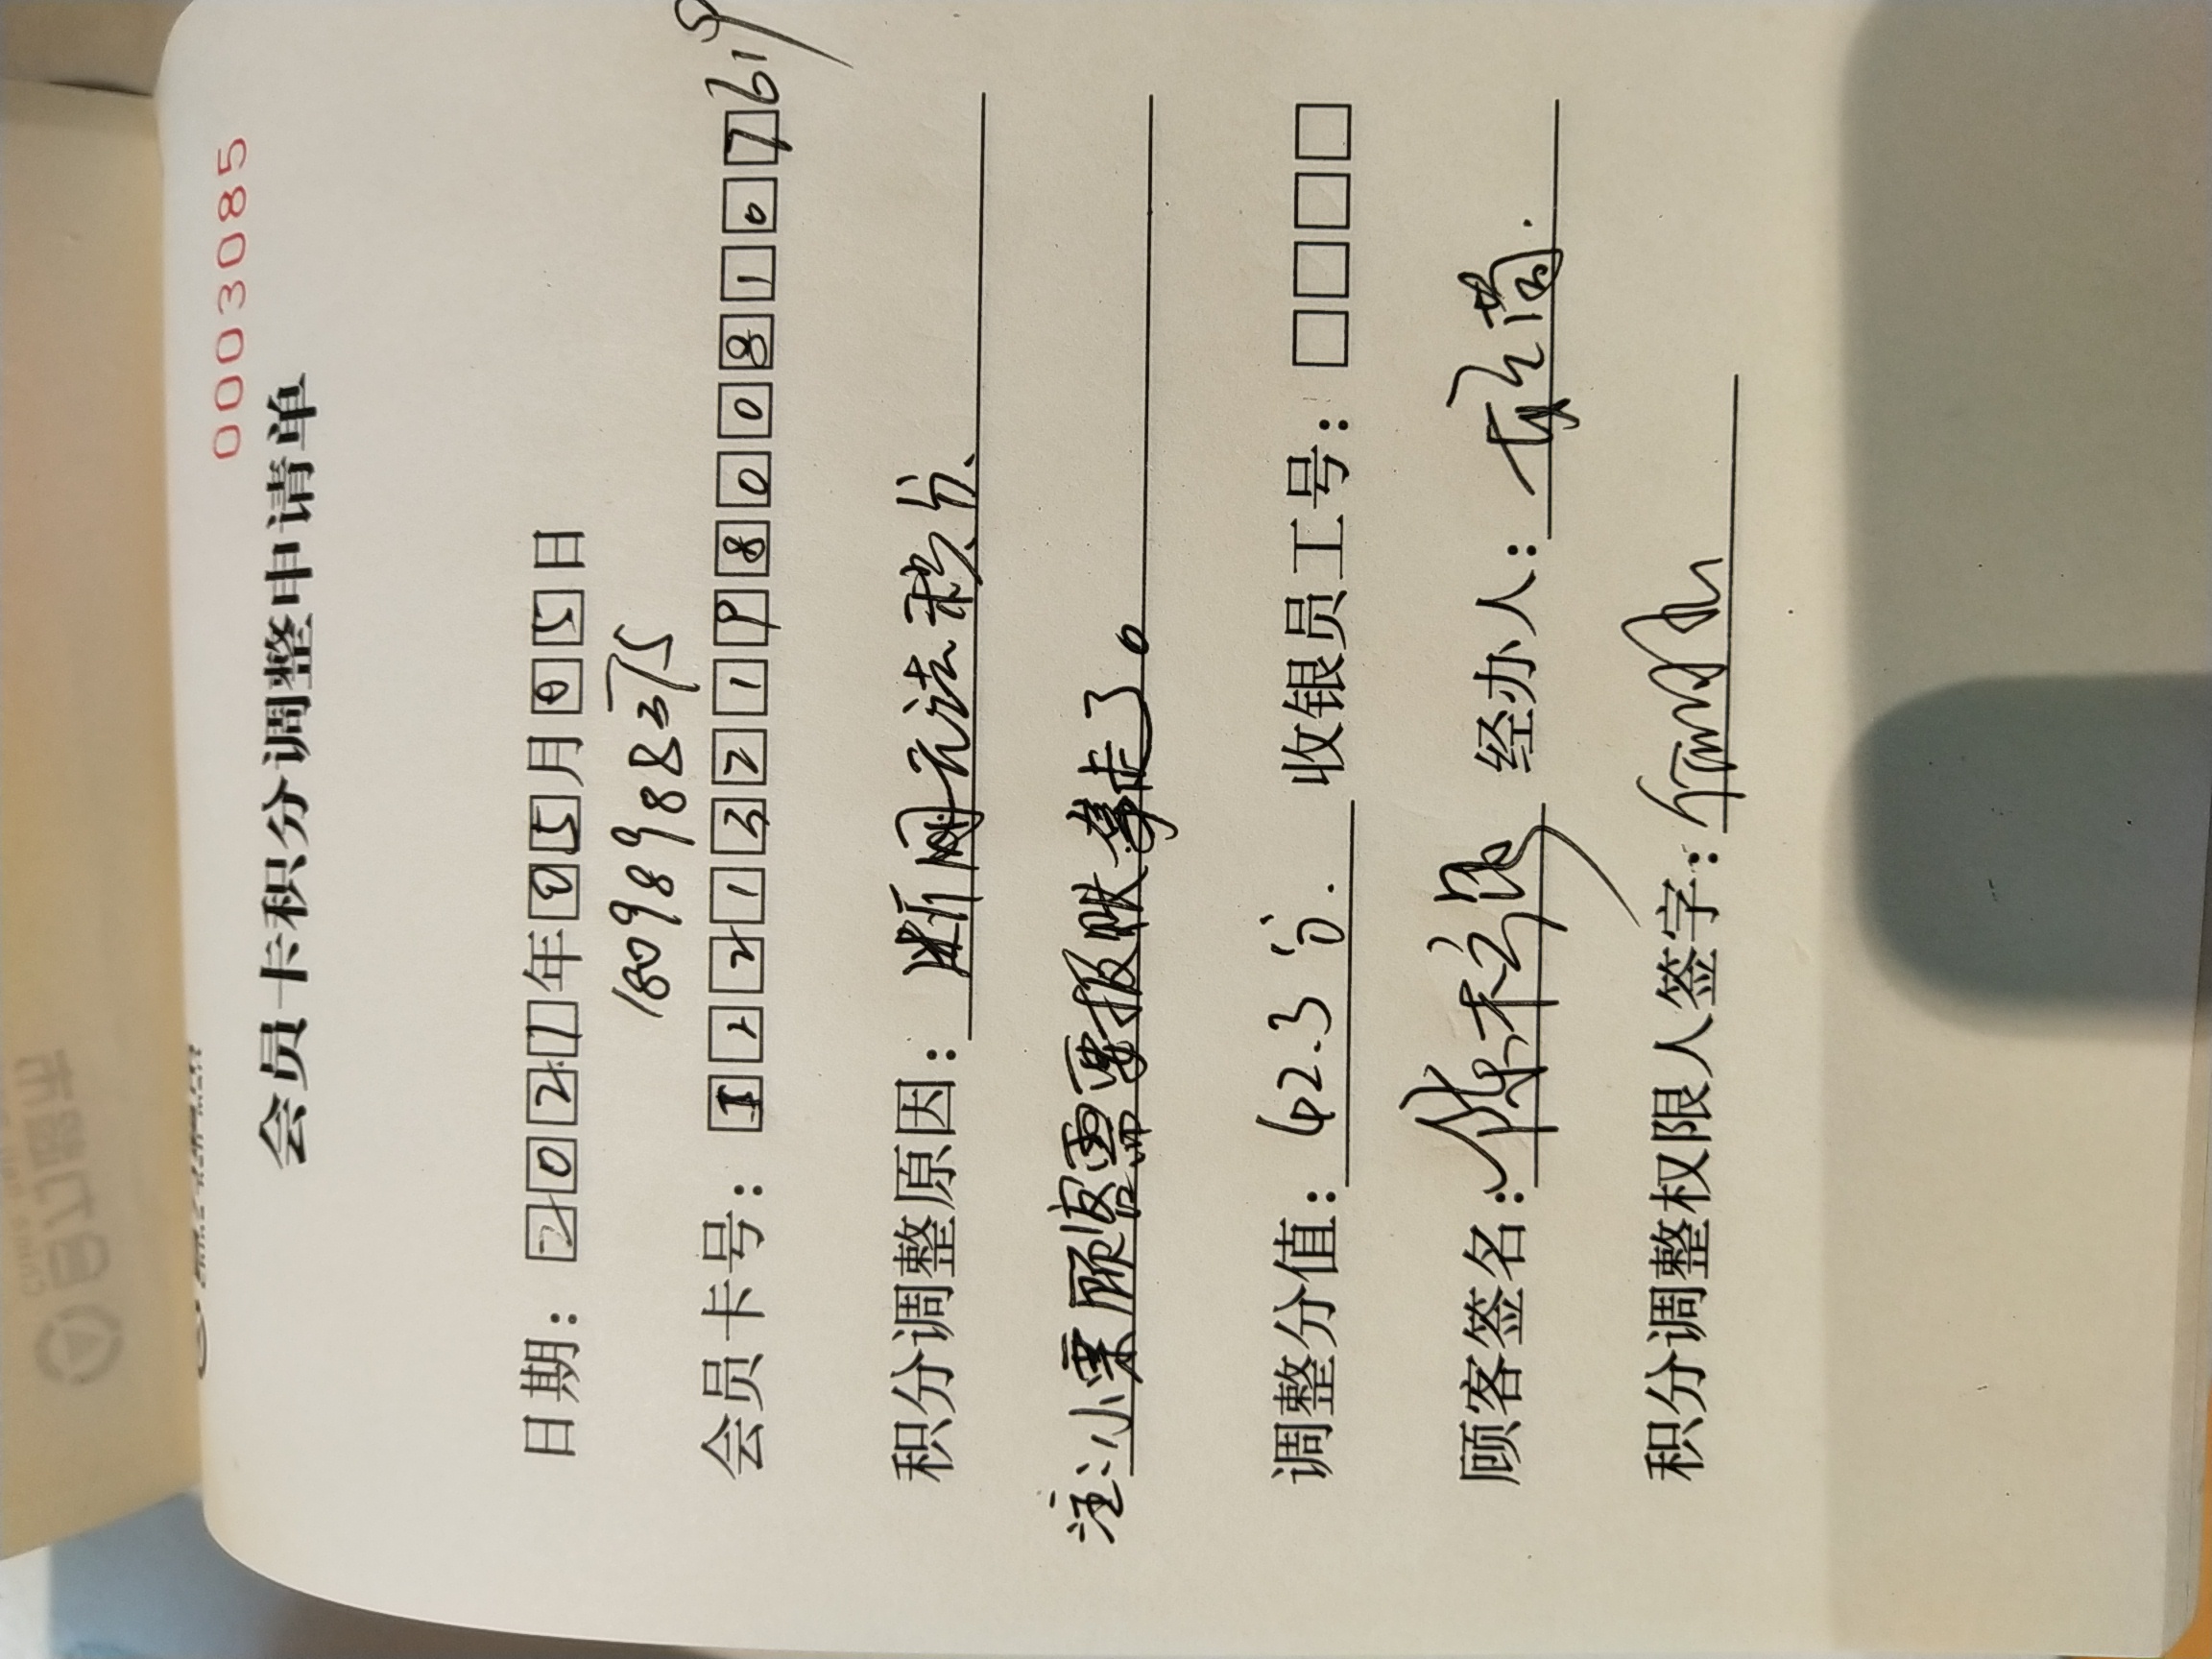 0003085
会员卡积分调整申请单
日期：2021年05月05日
18098988375
会员卡号：5122132198008107619
积分调整原因：断网无法积分、
注：小票顾客需要报账拿走了。
调整分值：42.3分. 收银员工号：□□□□
顾客签名： 经办人：
积分调整权限人签字：